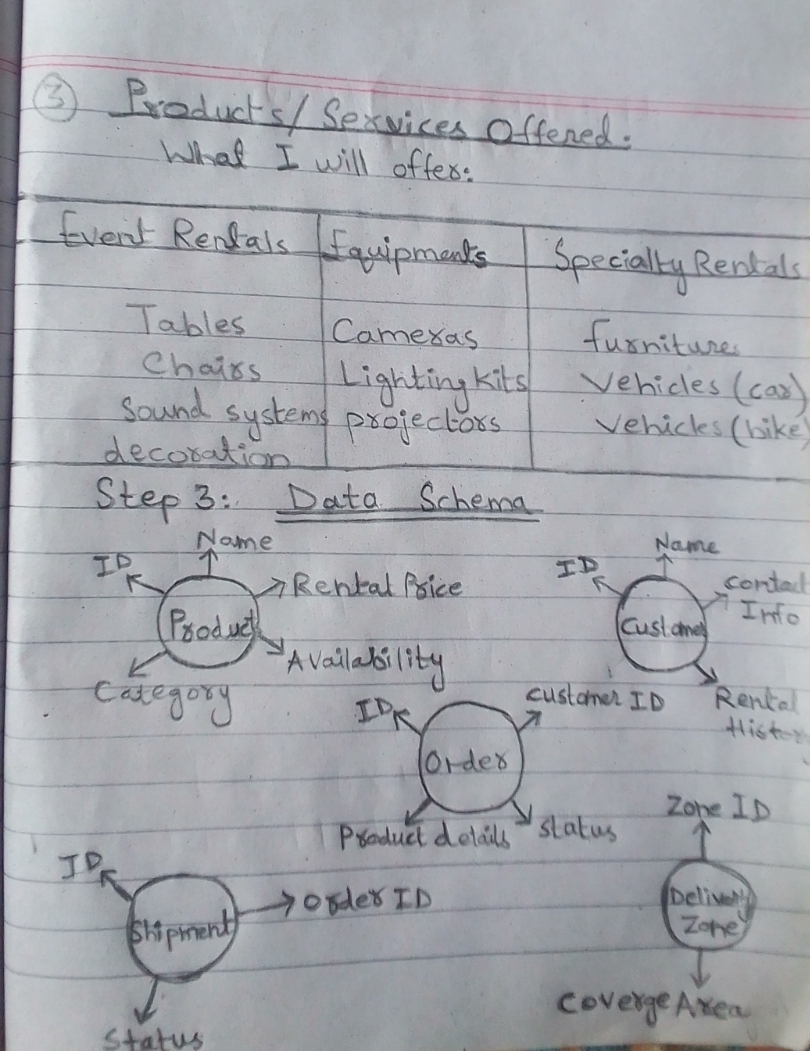 3 Products/Services Offered:
What I will offer:
Event Rentals Equipments Specialty Rentals
Tables Cameras furnitures
Chairs Lighting kits vehicles (car)
Sound systems projectors vehicles (bike)
decoration
Step 3: Data Schema
Name
ID
Rental Price
Product
Availability
Category
Name
ID
contact
Info
Customer
Rental
Histor
ID
customer ID
Order
Product details
status
ID
Order ID
Shipment
Status
Zone ID
Delivery
Zone
CovergeArea